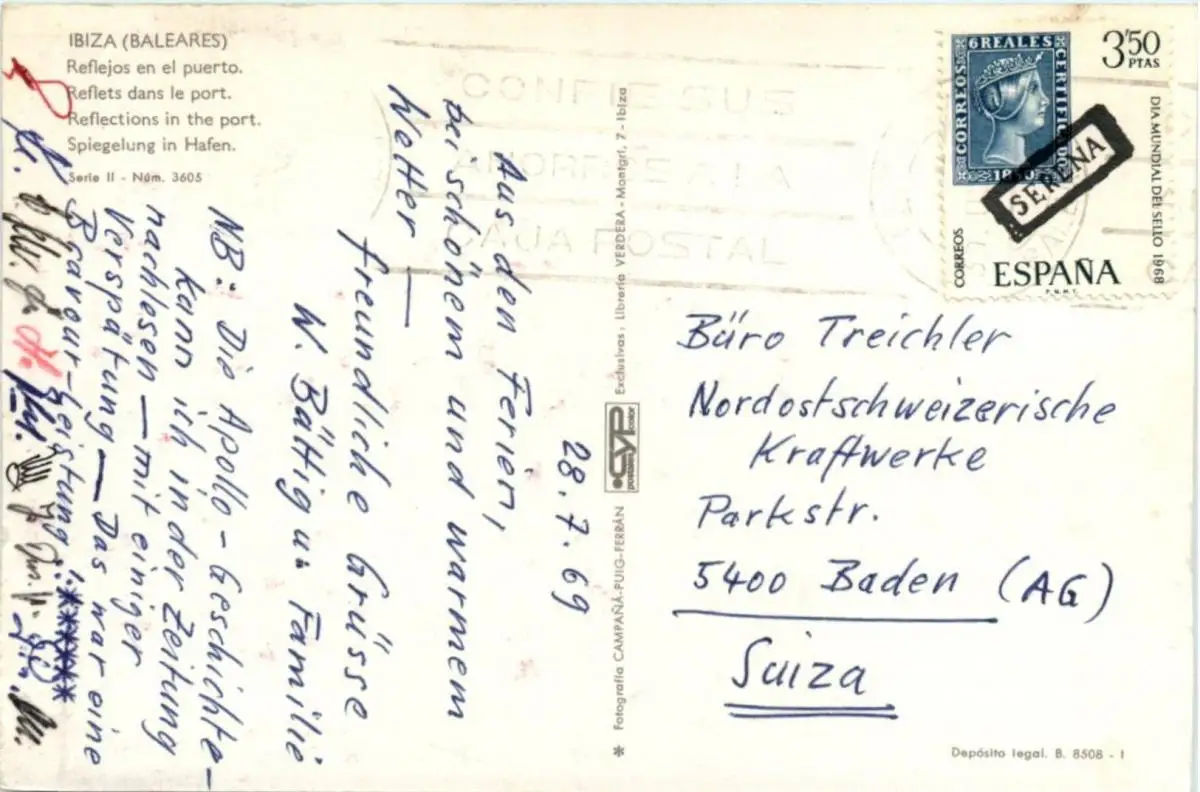 IBIZA (BALEARES)
Reflejos en el puerto.
Reflets dans le port.
Reflections in the port.
Spiegelung in Hafen.
Serie II - Núm. 3605
28.7.69
Aus den Ferien,
bei schönem und warmem
Wetter —
freundliche Grüsse
W. Bättig u. Familie
NB: Die Apollo-Geschichte –
kann ich in der Zeitung
nachlesen — mit einiger
Verspätung — Das war eine
Bravour-Leistung!
Fotografía CAMPAÑÁ-PUIG-FERRÁN
CYP
postales color
Exclusivas: Librería VERDERA - Montgrí, 7 - Ibiza
CONFIE SUS
AHORROS A LA
CAJA POSTAL
6 REALES
CORREOS
CERTIFICADO
1850
3'50
PTAS
DIA MUNDIAL DEL SELLO 1968
CORREOS
ESPAÑA
F.N.M.T.
SERENA
Büro Treichler
Nordostschweizerische
Kraftwerke
Parkstr.
5400 Baden (AG)
Suiza
Depósito legal. B. 8508 - I